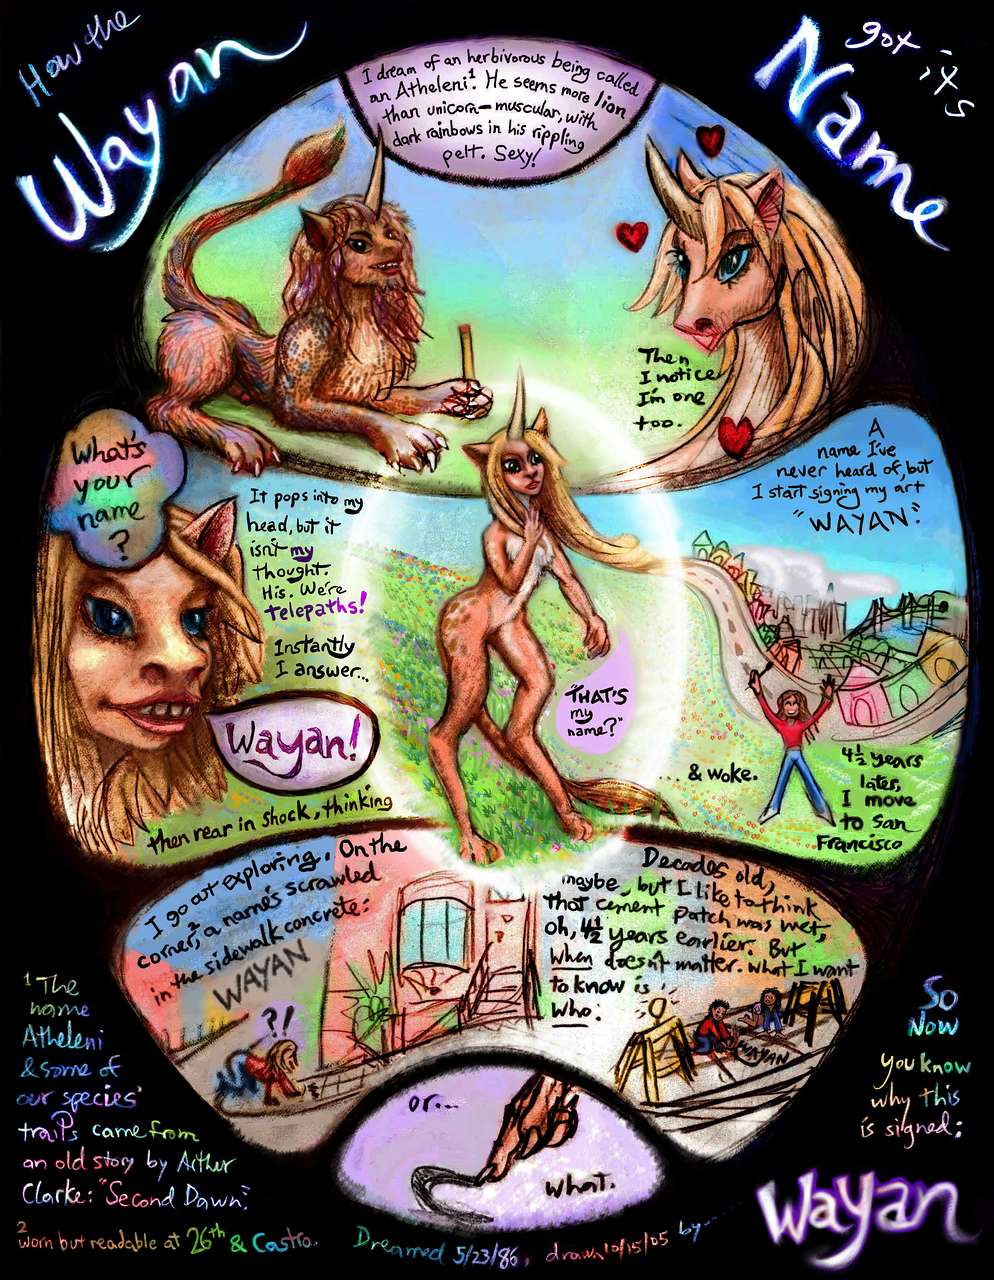 How the
Wayan
got its
Name
I dream of an herbivorous being called
an Atheleni.¹ He seems more lion
than unicorn—muscular, with
dark rainbows in his rippling
pelt. Sexy!
Then
I notice
I'm one
too.
What's
your
name
?
It pops into my
head, but it
isn't my
thought.
His. We're
telepaths!
Instantly
I answer...
Wayan!
then rear in shock, thinking
"THAT'S
my
name?"
... & woke.
A
name I've
never heard of, but
I start signing my art
"WAYAN."
4½ years
later,
I move
to San
Francisco
I go out exploring. On the
corner,² a name's scrawled
in the sidewalk concrete:
WAYAN
?!
Decades old,
maybe, but I like to think
that cement patch was wet,
oh, 4½ years earlier. But
When doesn't matter. What I want
to know is
Who:
WAYAN
or...
what.
¹ The
name
Atheleni
& some of
our species'
traits came from
an old story by Arthur
Clarke: "Second Dawn".
² worn but readable at 26th & Castro.
Dreamed 5/23/86, drawn 10/15/05 by
So
Now
you know
why this
is signed:
Wayan